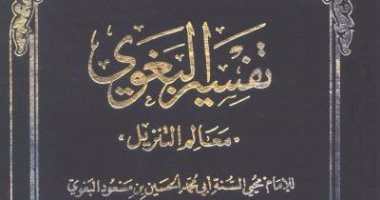 تفسير البغوي
«معالم التنزيل»
للإمام محيي السنة أبي محمد الحسين بن مسعود البغوي